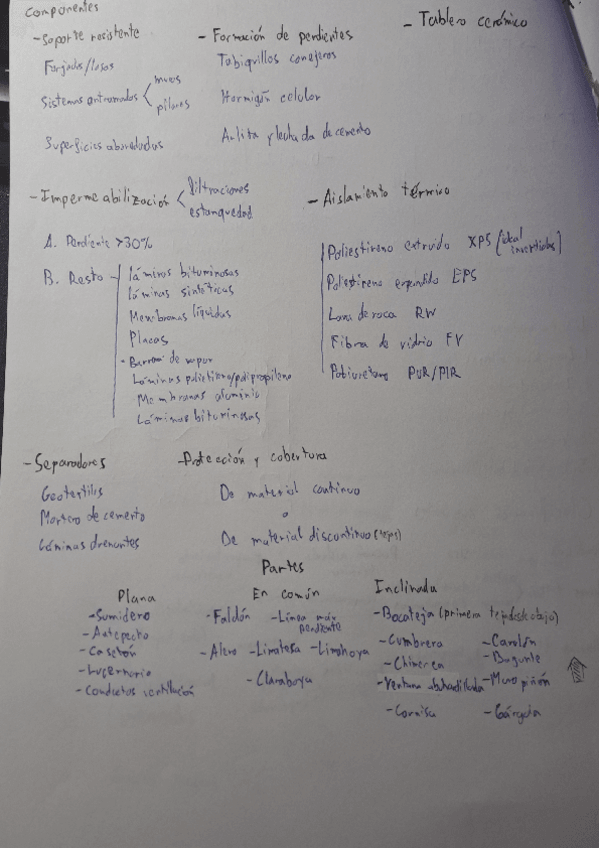 Componentes
- Soporte resistente
Forjados/losas
Sistemas entramados < muros
pilares
Superficies abovedadas
- Formación de pendientes
Tabiquillos conejeros
Hormigón celular
Arlita y lechada de cemento
- Tablero cerámico
- Impermeabilización < filtraciones
estanquedad
A. Pendiente >30%
B. Resto
láminas bituminosas
láminas sintéticas
Membranas líquidas
Placas
- Barrera de vapor
Láminas polietileno/polipropileno
Membranas aluminio
Láminas bituminosas
- Aislamiento térmico
Poliestireno extruido XPS (ideal invertidas)
Poliestireno expandido EPS
Lana de roca RW
Fibra de vidrio FV
Poliuretano PUR/PIR
- Separadores
Geotextiles
Mortero de cemento
Láminas drenantes
- Protección y cobertura
De material continuo
o
De material discontinuo (tejas)
Partes
Plana
- Sumidero
- Antepecho
- Casetón
- Lucernario
- Conductos ventilación
En común
- Faldón - Línea máx pendiente
- Alero - Limatesa - Limahoya
- Claraboya
Inclinada
- Bocateja (primera teja desde abajo)
- Cumbrera - Canalón
- Chimenea - Bajante
- Ventana abuhardillada - Muro piñón
- Cornisa - Gárgola